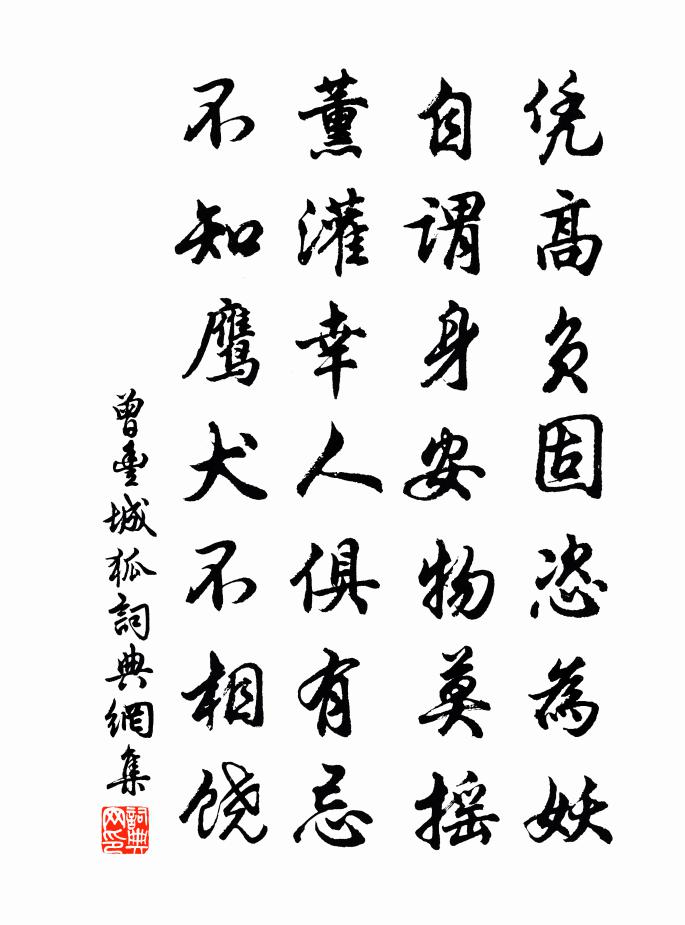 凭高负固恣為妖
自謂身安物莫摇
薰灌幸人俱有忌
不知鹰犬不相饶
曾豊城狐詞典網集
詞典
网印